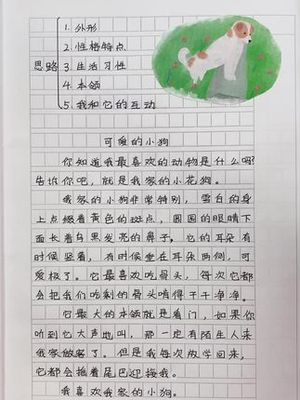 思路
1.外形
2.性格特点
3.生活习性
4.本领
5.我和它的互动
可爱的小狗
你知道我最喜欢的动物是什么吗?
告诉你吧,就是我家的小花狗。
我家的小狗非常特别,雪白的身
上点缀着黄色的斑点,圆圆的眼睛下
面长着乌黑发亮的鼻子,它的耳朵有
时候竖着,有时候垂在耳朵两侧,可
爱极了。它最喜欢吃骨头,每次它都
会把我们吃剩的骨头啃得干干净净。
它最大的本领就是看门,如果你
听到它大声地叫,那一定有陌生人来
我家做客了。但是我每次放学回来,
它都会摇着尾巴迎接我。
我喜欢我家的小狗。